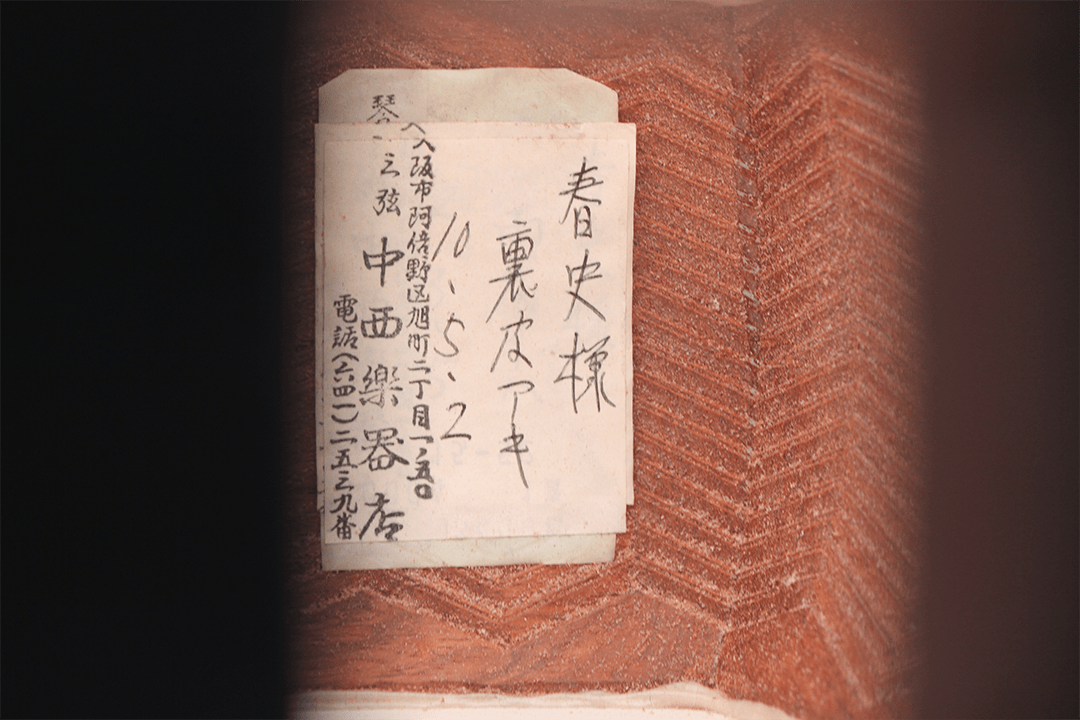 春史様
裏皮アキ
10、5、2
大阪市阿倍野区旭町二丁目一ノ五〇
琴、三弦 中西楽器店
電話(六四一)二五三九番